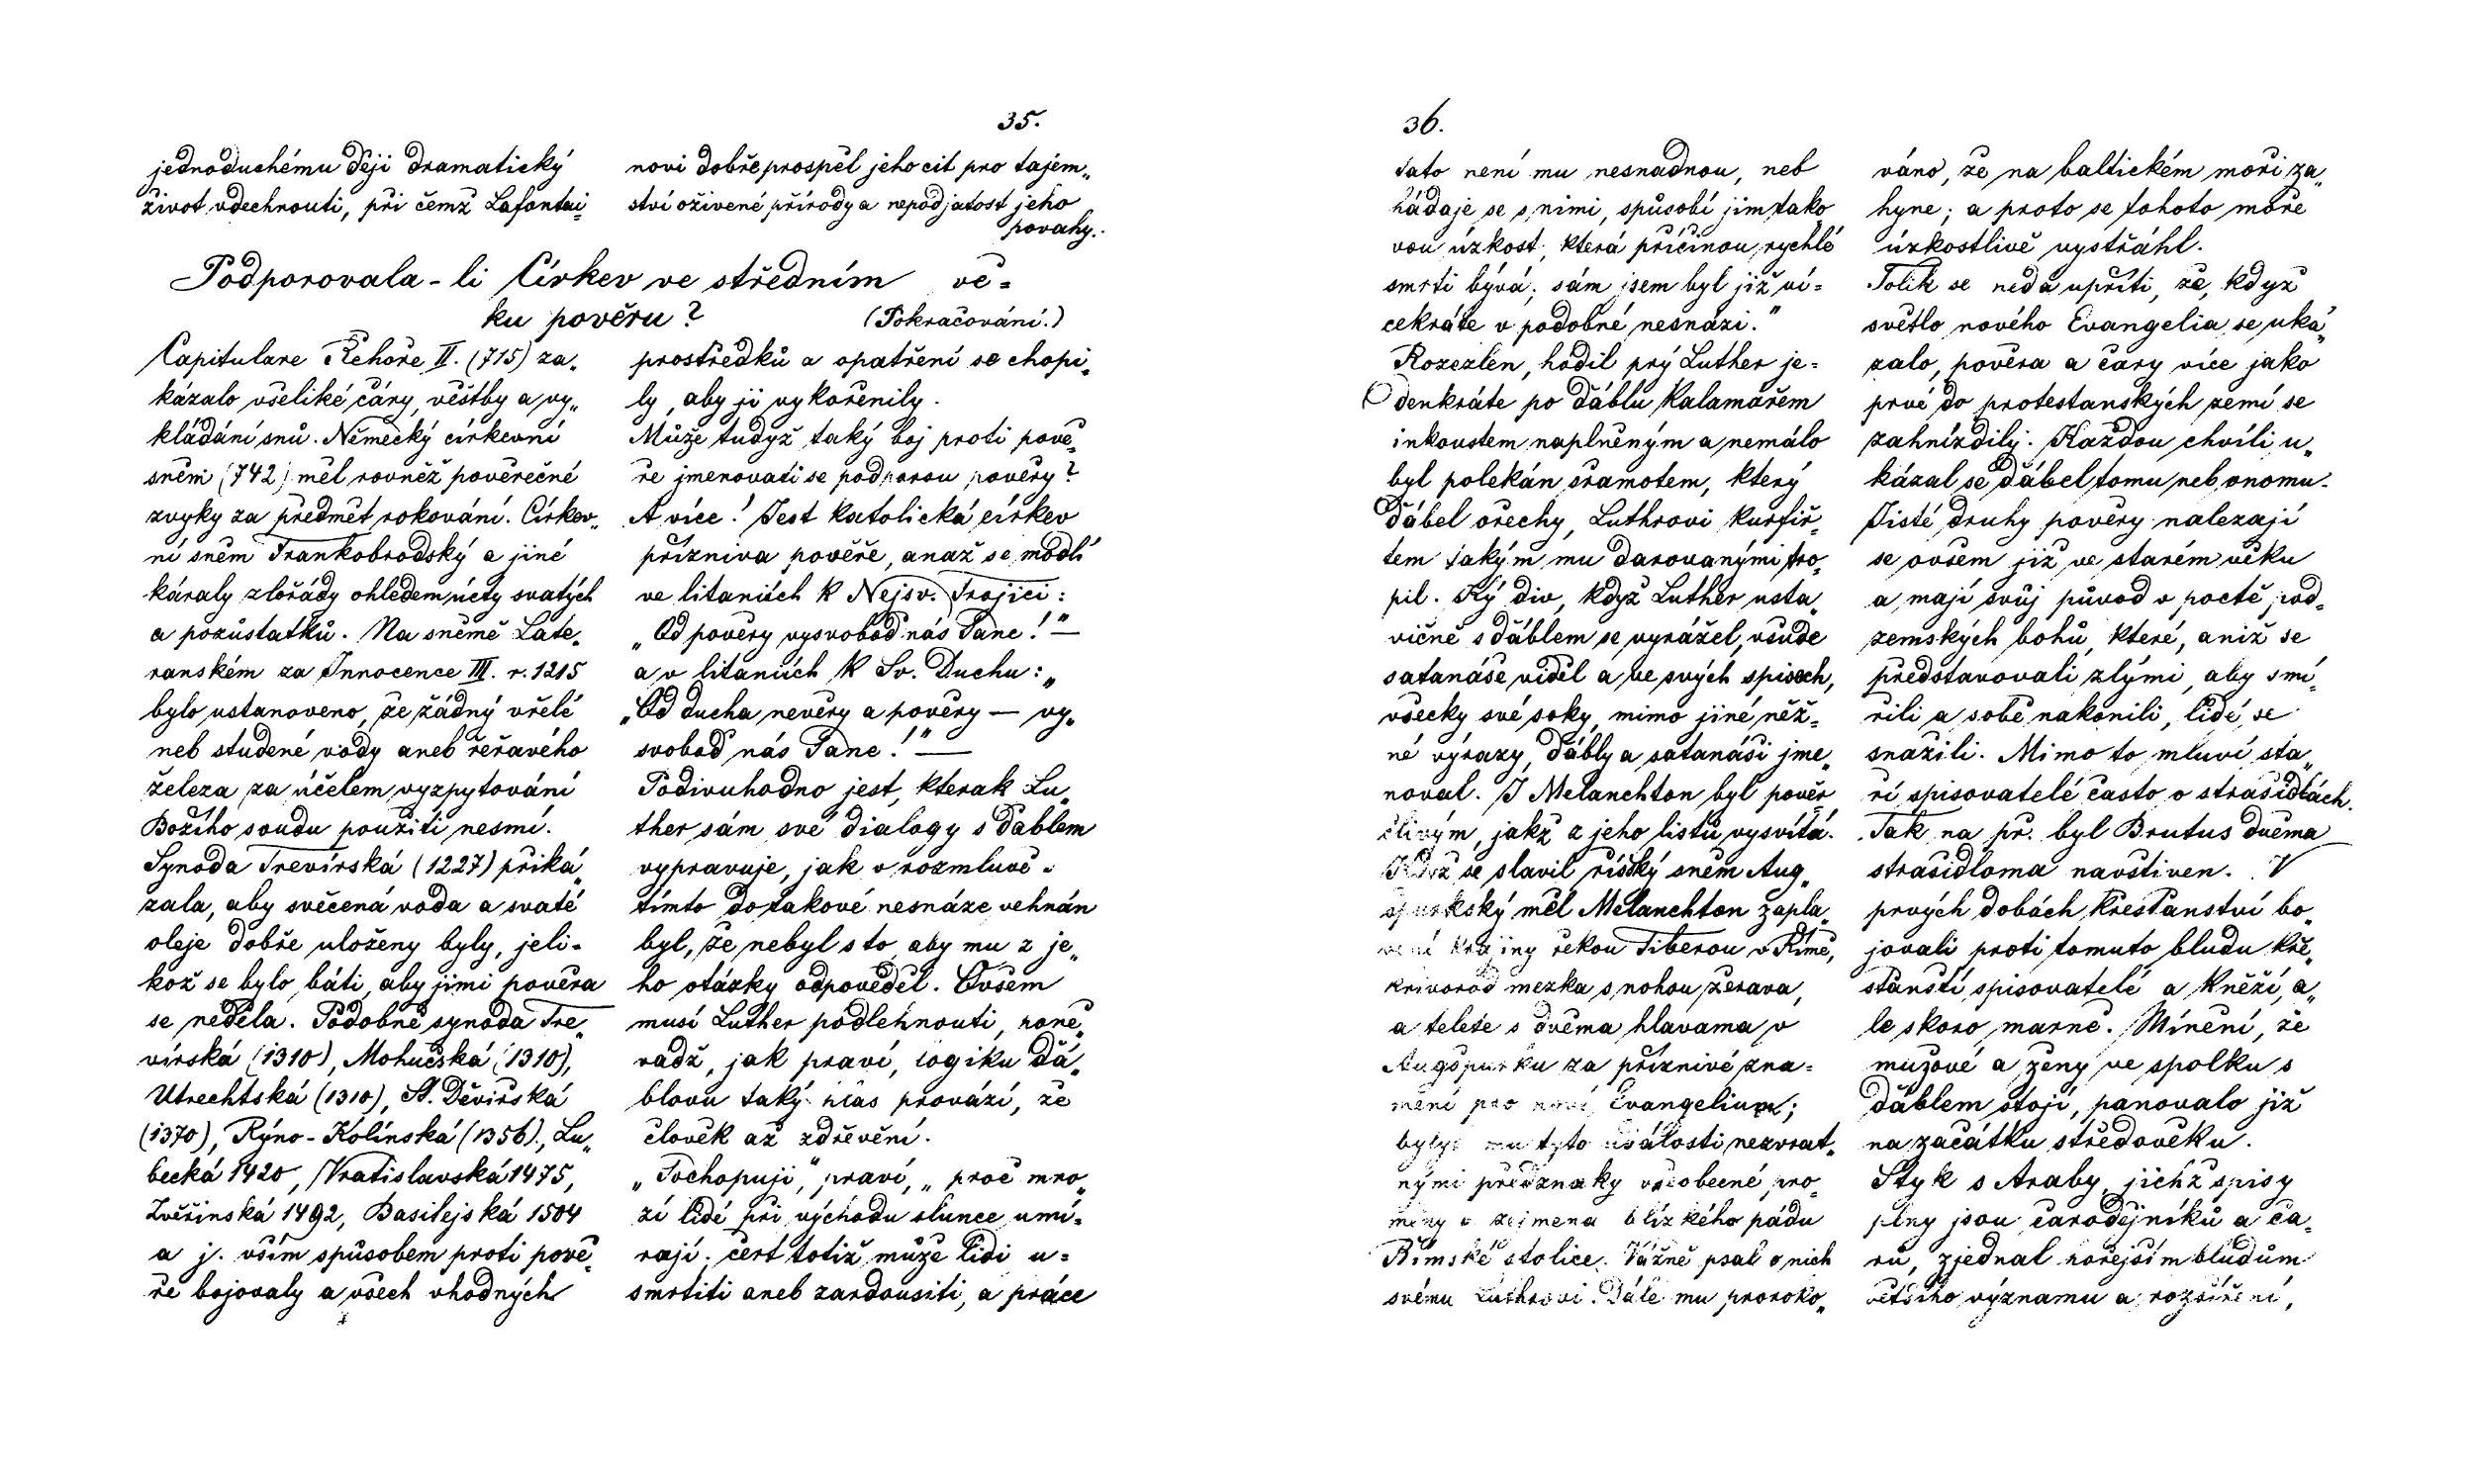 35.
jednoduchému ději dramatický
život vdechnouti, při čemž Lafontai=
novi dobře prospěl jeho cit pro tajem„
ství oživené přírody a nepodjatost jeho
povahy.
Podporovala-li Církev ve středním vě=
ku pověru?
(Pokračování.)
Capitulare Řehoře II. (715) za„
kázalo všeliké čáry, věštby a vy„
kládání snů. Německý církevní
sněm (742) měl rovněž pověrečné
zvyky za předmět rokování. Církev„
ní sněm Frankobrodský a jiné
káraly zlořády ohledem úcty svatých
a pozůstatků. Na sněmě Late„
ranském za Innocence III. r. 1215
bylo ustanoveno, že žádný vřelé
neb studené vody aneb řeřavého
železa za účelem vyzpytování
Božího soudu použíti nesmí.
Synoda Trevírská (1227) přiká„
zala, aby svěcená voda a svaté
oleje dobře uloženy byly, jeli=
kož se bylo báti, aby jimi pověra
se neděla. Podobně synoda Tre„
vírská (1310), Mohučská (1310),
Utrechtská (1310), St. Děvírská
(1370), Rýno-Kolínská (1356)., Lu„
becká 1420, Vratislavská 1475,
Zvěřinská 1492, Basilejská 1504
a j. vším spůsobem proti pově„
ře bojovaly a všech vhodných
prostředků a opatření se chopi„
ly, aby ji vykořenily.
Může tudyž taký boj proti pově„
ře jmenovati se podporou pověry?
A více! Jest katolická církev
přízniva pověře, anaž se modlí
ve litaniích k Nejsv. Trojici:
„Od pověry vysvoboď nás Pane!" —
a v litaniích k Sv. Duchu: „
„Od ducha nevěry a pověry — vy„
svoboď nás Pane!" —
Podivuhodno jest, kterak Lu„
ther sám své dialogy s ďáblem
vypravuje, jak v rozmluvě
tímto do takové nesnáze vehnán
byl, že nebyl s to, aby mu z je„
ho otázky odpověděl. Ovšem
musí Luther podlehnouti, poně„
vadž, jak praví, logiku ďá„
blovu taký hlas provází, že
člověk až zdřevění.
„Pochopuji," praví, „proč mno„
zí lidé při východu slunce umí=
rají; čert totiž může lidi u=
smrtiti aneb zardousiti, a práce
36.
tato není mu nesnadnou, neb
hádaje se s nimi, spůsobí jim tako„
vou úzkost, která příčinou rychlé
smrti bývá; sám jsem byl již ví=
cekráte v podobné nesnázi."
Rozezlen, hodil prý Luther je=
denkráte po ďáblu kalamářem
inkoustem naplněným a nemálo
byl polekán šramotem, který
ďábel ořechy, Luthrovi kurfiř„
tem takým mu darovanými tro„
pil. Ký div, když Luther usta„
vičně s ďáblem se vyrážel, všude
satanáše viděl a ve svých spisech,
všecky své soky, mimo jiné něž=
né výrazy, ďábly a satanáši jme„
noval. I Melanchton byl pověr„
člivým, jakž z jeho listů vysvítá.
Když se slavil říšský sněm Aug„
špurkský měl Melanchton zapla„
vení krajiny řekou Tiberou v Římě,
křivorod mezka s nohou žerava,
a telete s dvěma hlavama v
Augšpurku za příznivé zna=
mení pro nové Evangelium;
byly mu tyto události nezvrat„
nými předznaky všeobecné pro„
měny a zejmena blízkého pádu
Římské stolice. Vážně psal o nich
svému Luthrovi. Dále mu proroko„
váno, že na baltickém moři za„
hyne; a proto se tohoto moře
úzkostlivě vystřáhl.
Tolik se nedá upříti, že, když
světlo nového Evangelia se uká„
zalo, pověra a čáry více jako
prvé do protestanských zemí se
zahnízdily. Každou chvíli u„
kázal se ďábel tomu neb onomu.
Jisté druhy pověry nalezají
se ovšem již ve starém věku
a mají svůj původ v poctě pod„
zemských bohů, které, aniž se
představovali zlými, aby smí„
řili a sobě naklonili, lidé se
snažili. Mimo to mluví sta„
ří spisovatelé často o strašidlách.
Tak na př. byl Brutus dvěma
strašidloma navštíven. V
prvých dobách křesťanství bo„
jovali proti tomuto bludu kře„
sťanští spisovatelé a kněží, a„
le skoro marně. Mínění, že
mužové a ženy ve spolku s
ďáblem stojí, panovalo již
na začátku středověku.
Styk s Araby, jichž spisy
plny jsou čarodějníků a ča„
rů, zjednal hořejším bludům
většího významu a rozšíření,